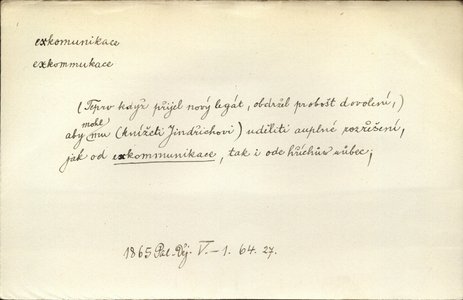 exkomunikace
exkommukace
(Teprv když přijel nový legát, obdržel probošt dovolení,)
mohl
aby mu (knížeti Jindřichovi) uděliti auplné rozřešení,
jak od exkommunikace, tak i ode hříchův vůbec;
1865 Pal. Děj. V.–1. 64. 27.